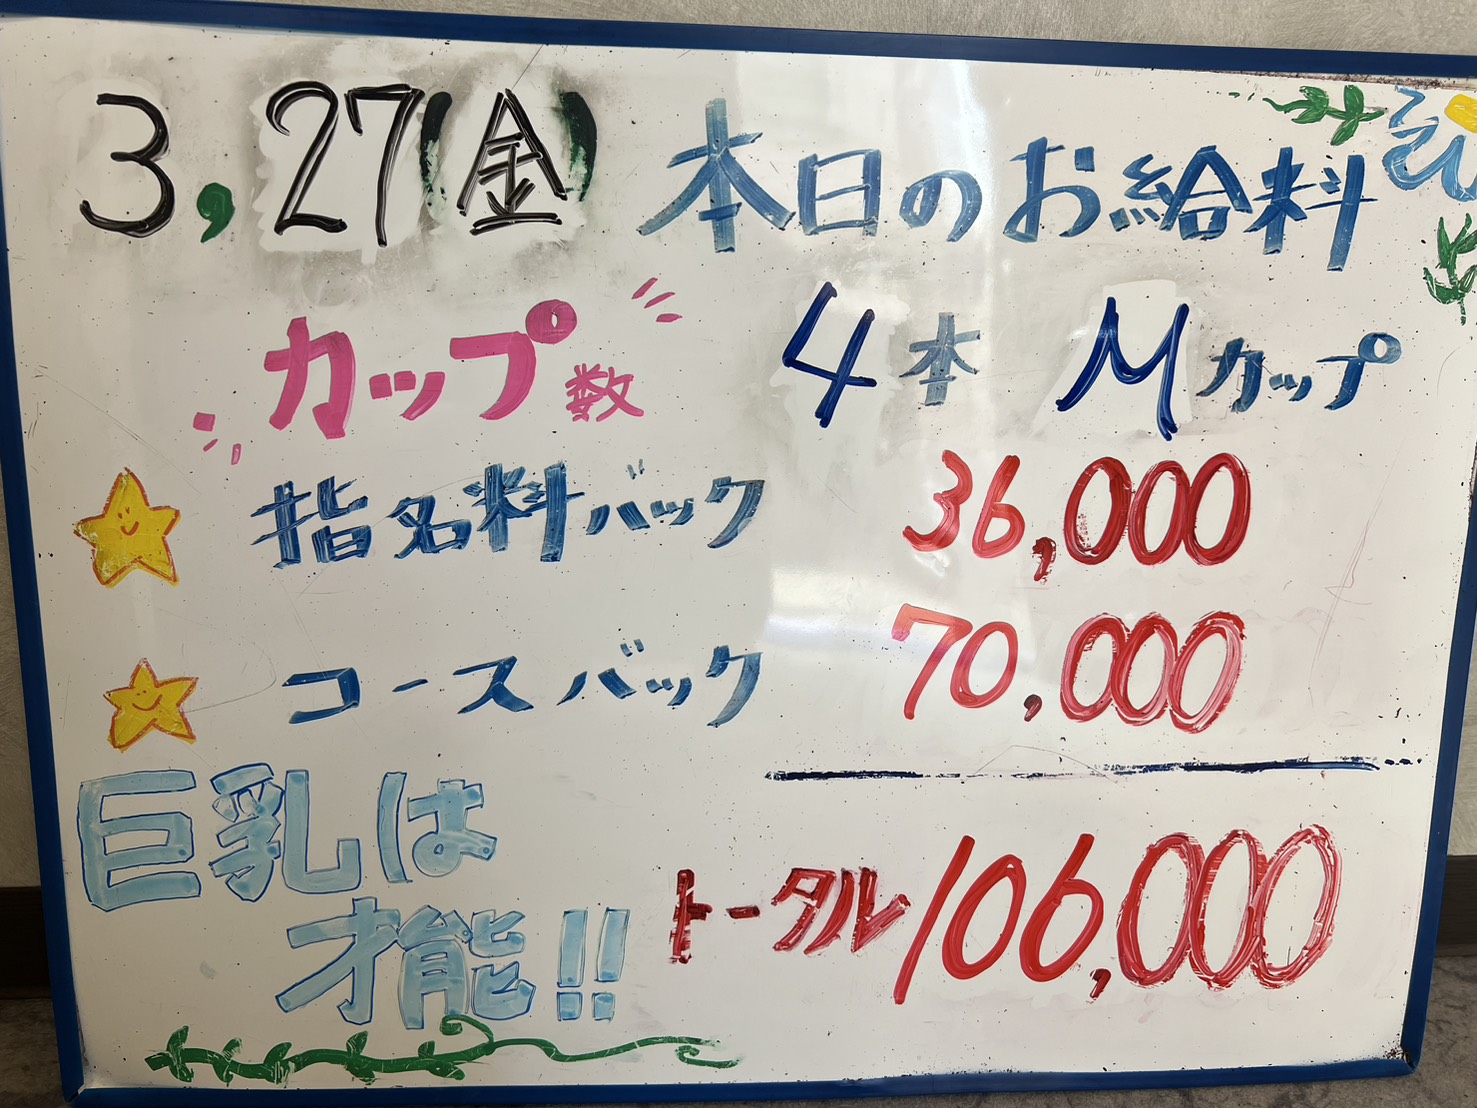 3,27(金) 本日のお給料
カップ数 4本 Mカップ
指名料バック 36,000
コースバック 70,000
巨乳は
才能!!
トータル 106,000